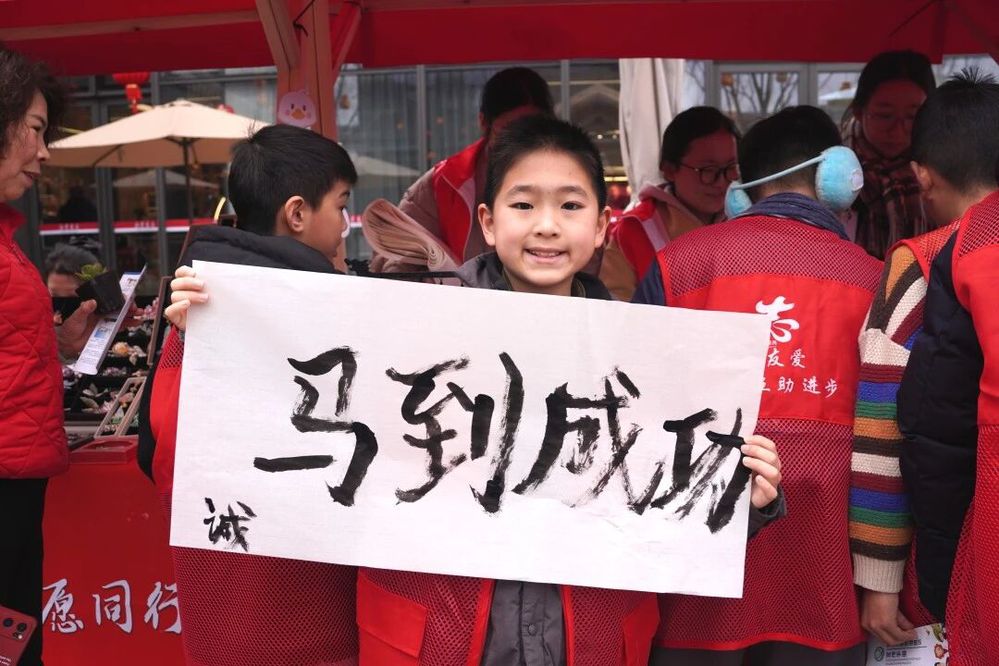 马到成功
诚
志
友爱
互助进步
愿同行